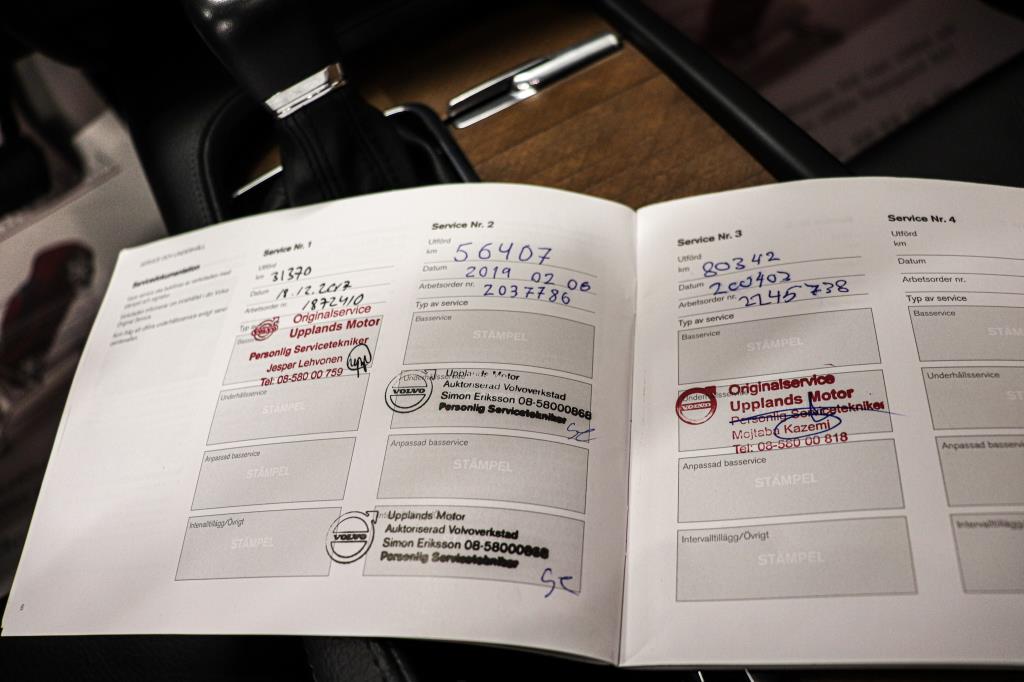 SERVICE OCH UNDERHÅLL
Servicedokumentation
Service Nr. 1
Utförd
km 31370
Datum 18.12.2017
Arbetsorder nr. 1872410
Typ
Originalservice
Upplands Motor
Personlig Servicetekniker
Jesper Lehvonen
Tel: 08-580 00 759
Underhållsservice
STÄMPEL
Anpassad basservice
STÄMPEL
Intervalltillägg/Övrigt
STÄMPEL
6
Service Nr. 2
Utförd
km 56407
Datum 2019 02 06
Arbetsorder nr. 2037786
Typ av service
Basservice
STÄMPEL
Underhållsservice
VOLVO
Upplands Motor
Auktoriserad Volvoverkstad
Simon Eriksson 08-58000868
Personlig Servicetekniker
SE
Anpassad basservice
STÄMPEL
VOLVO
Upplands Motor
Auktoriserad Volvoverkstad
Simon Eriksson 08-58000868
Personlig Servicetekniker
SE
Service Nr. 3
Utförd
km 80342
Datum 200402
Arbetsorder nr. 2145738
Typ av service
Basservice
STÄMPEL
VOLVO
Originalservice
Upplands Motor
Personlig Servicetekniker
Mojtaba Kazemi
Tel: 08-580 00 818
Anpassad basservice
STÄMPEL
Intervalltillägg/Övrigt
STÄMPEL
Service Nr. 4
Utförd
km
Datum
Arbetsorder nr.
Typ av service
Basservice
Underhållsservice
Anpassad basservice
Intervalltillägg/Övrigt